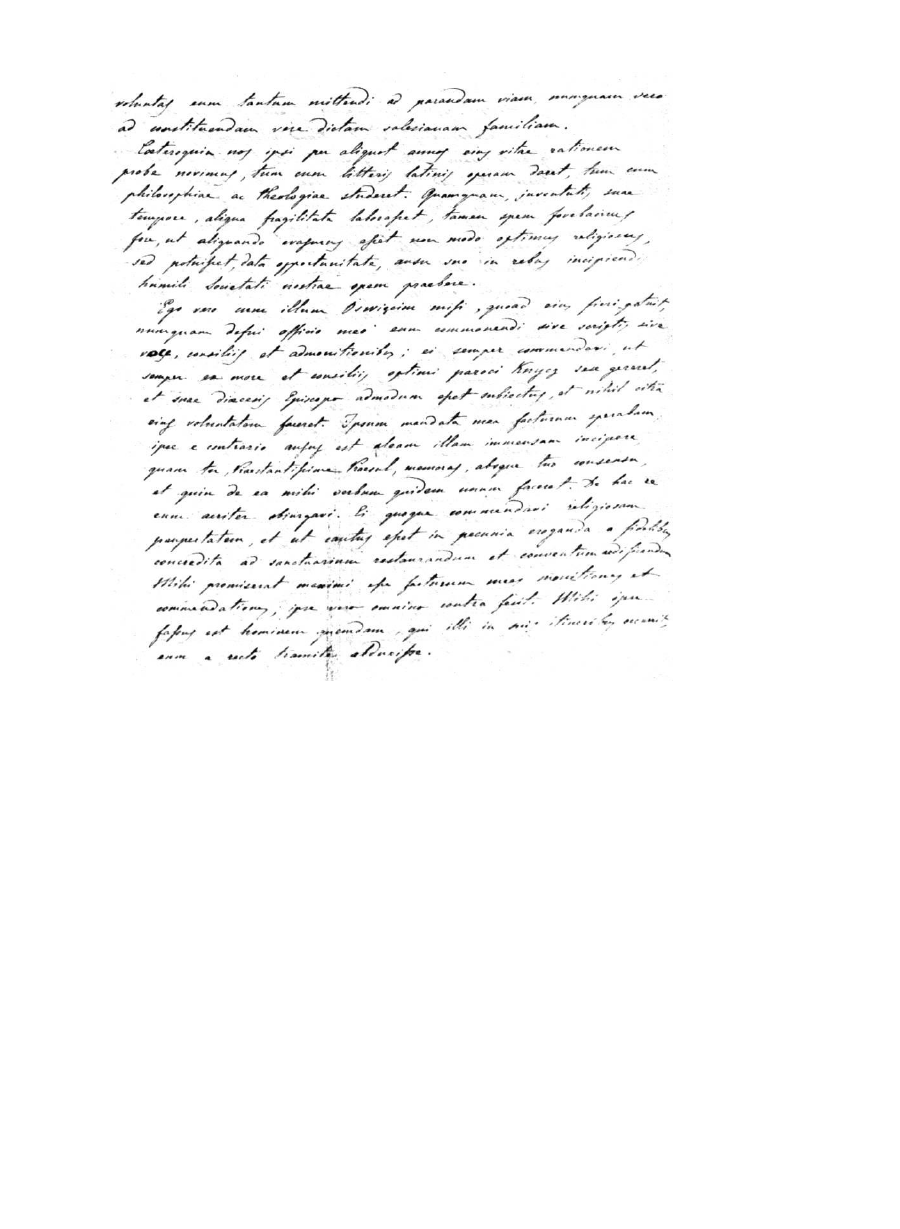 voluntas eum tantum mittendi ad parandam viam, numquam vero
ad constituendam vere dictam salesianam familiam.
Coeteroquin nos ipsi per aliquot annos eius vitae rationem
probe novimus, tum cum litteris latinis operam daret, tum cum
philosophiae ac theologiae studeret. Quamquam, juventutis suae
tempore, aliqua fragilitate laborasset, tamen spem fovebamus
fore, ut aliquando evasurus esset non modo optimus religiosus,
sed potuisset, data opportunitate, ausu suo in rebus incipiendis
humili Societati nostrae opem praebere.
Ego vero cum illum Osweiçim misi, quoad eius fieri potuit,
numquam defui officio meo eum commonendi sive scriptis sive
voce, consiliis et admonitionibus; ei semper commendavi ut
semper ex more et consiliis optimi paroci Knycz sese gereret,
et suae diæcesis Episcopo admodum esset subiectus, et nihil citra
eius voluntatem faceret. Ipsum mandata mea facturum sperabam:
ipse e contrario ausus est aleam illam immensam incipere
quam tu, Praestantissime Praesul, memoras, absque tuo consensu,
et quin de ea mihi verbum quidem unum faceret. De hac re
eum acriter obiurgavi. Ei quoque commendavi religiosam
paupertatem, et ut cautus esset in pecunia eroganda a fidelibus
concredita ad sanctuarium restaurandum et conventum aedificandum
Mihi promiserat maximi esse facturum meas monitiones et
commendationes; ipse vero omnino contra fecit. Mihi ipse
fassus est hominem quemdam, qui illi in suis itineribus occurrit,
eum a recto tramite abduxisse.